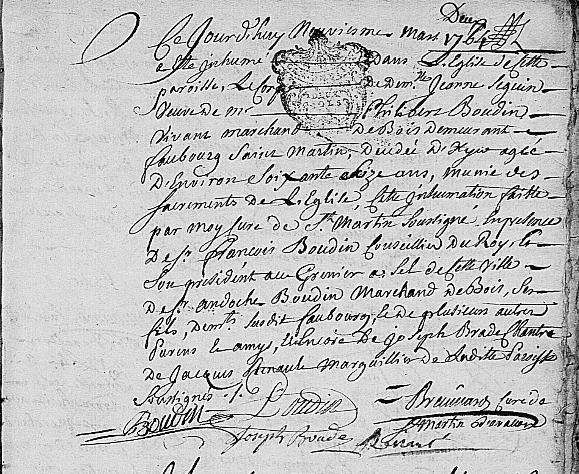 Deux
Ce Jourd'huy Neuviesme Mars 1764
a esté inhumé dans L'Eglise de cette
paroisse, Le Corps de dem.lle Jeanne Seguin
Veuve de m. Philibert Boudin
Vivant marchand de Bois demeurant
faubourg Saint Martin, decedée d'hyer agée
D'Environ Soixante et seize ans, munie des
sacrements de L'Eglise, cette inhumation faitte
par moy Curé de St. Martin Soussigné En presence
De Sr. François Boudin Conseillier Du Roy, Et
Son président au Grenier a Sel de cette Ville
de Sr. andoche Boudin Marchand de Bois, Ses
fils, demts. audit faubourg, et de plusieurs autres
Parens et amys, Encore de joseph Brade Chantre
de Jacques Marguillier de Laditte Paroisse
Soussignés
Boudin Boudin Curé de
Joseph Brade St Martin